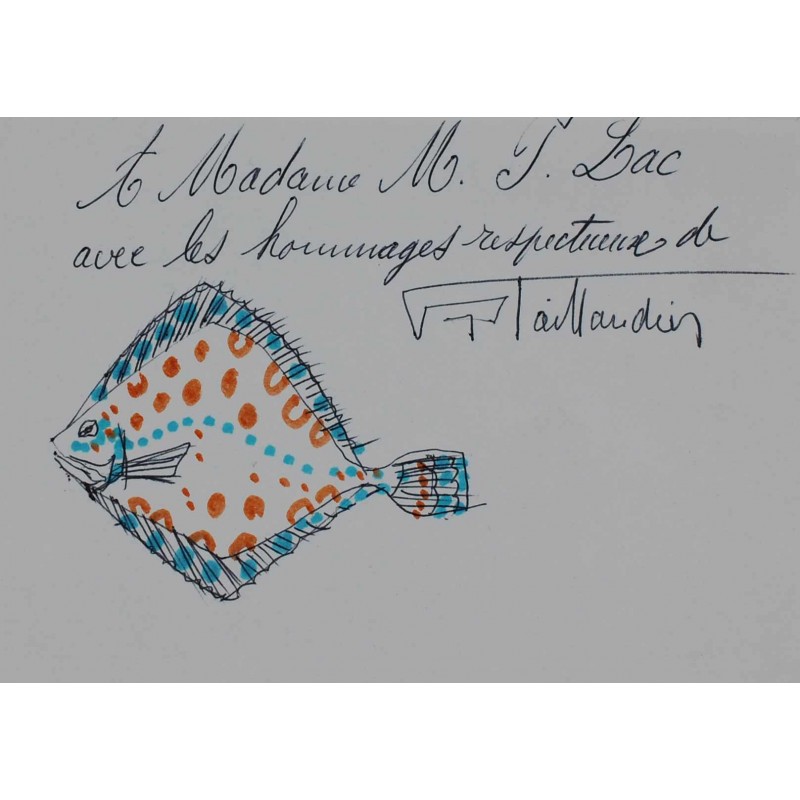 A Madame M. P. Lac
avec les hommages respectueux de
Y Taillandier